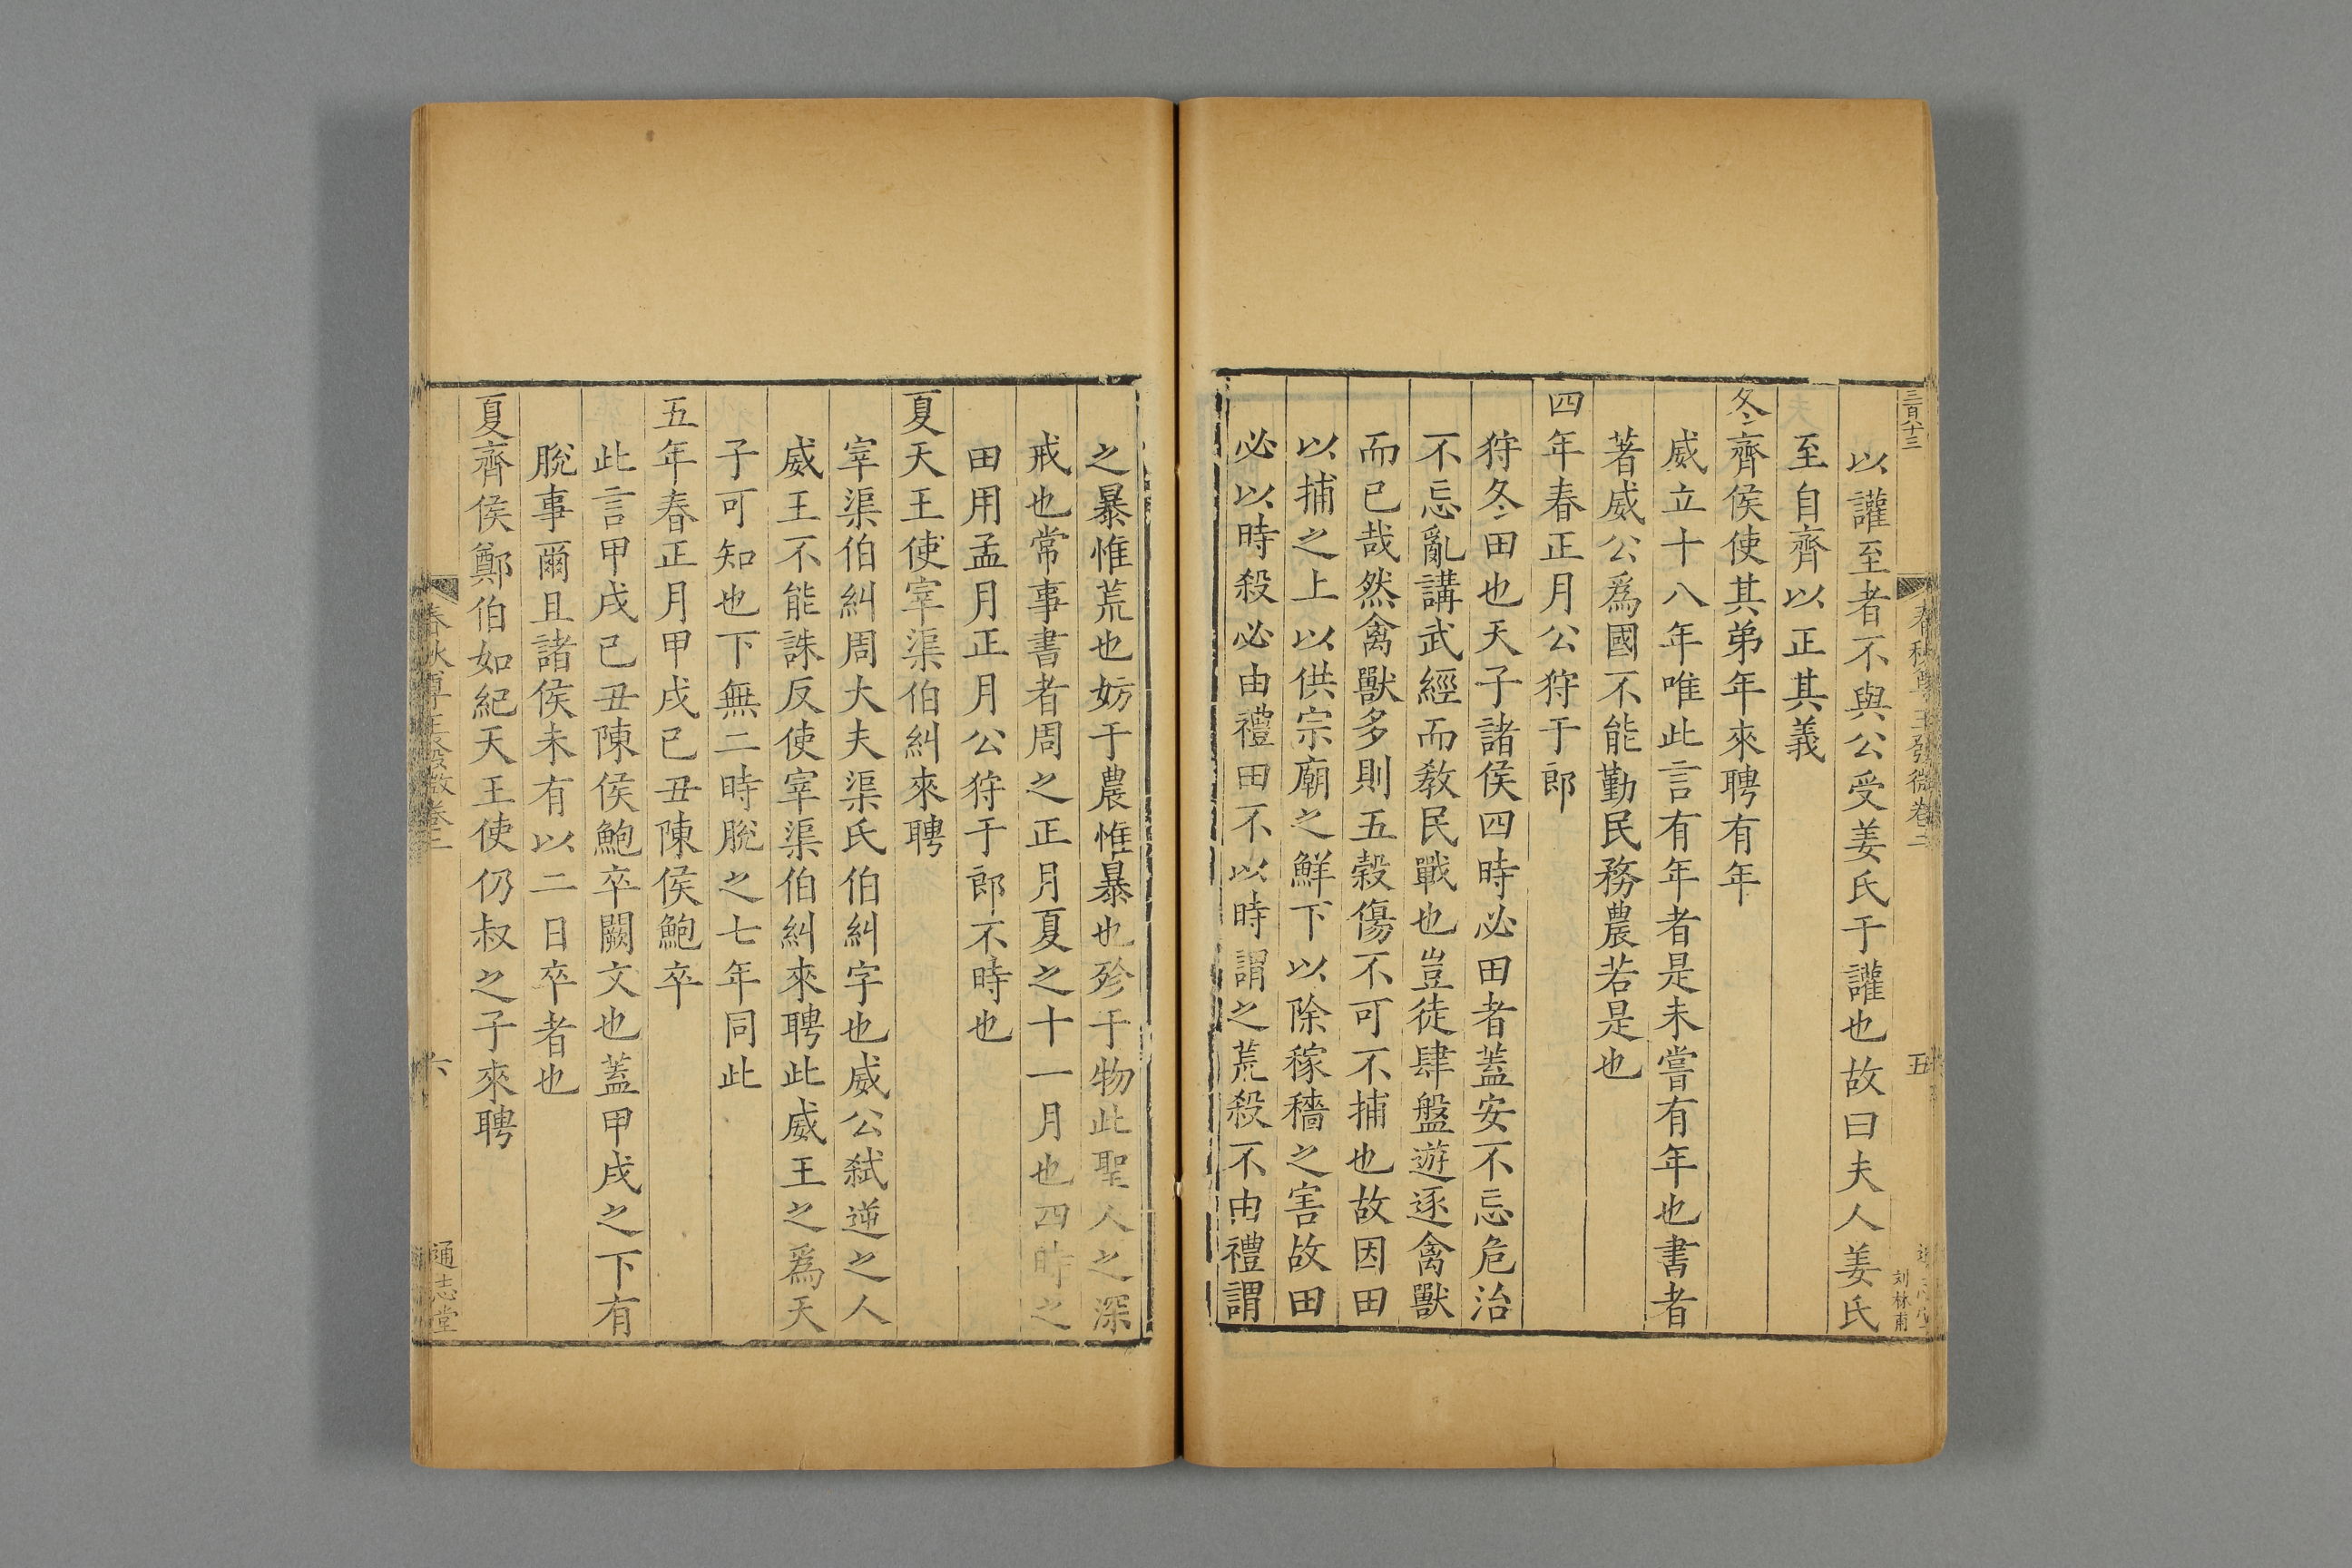 三百八十三
春秋尊王發微卷二
五
刘林甫
以讙至者不與公受姜氏于讙也故曰夫人姜氏
至自齊以正其義
冬齊侯使其弟年來聘有年
威立十八年唯此言有年者是未嘗有年也書者
著威公爲國不能勤民務農若是也
四年春正月公狩于郎
狩冬田也天子諸侯四時必田者蓋安不忘危治
不忘亂講武經而敎民戰也豈徒肆盤遊逐禽獸
而已哉然禽獸多則五穀傷不可不捕也故因田
以捕之上以供宗廟之鮮下以除稼穡之害故田
必以時殺必由禮田不以時謂之荒殺不由禮謂
之暴惟荒也妨于農惟暴也殄于物此聖人之深
戒也常事書者周之正月夏之十一月也四時之
田用孟月正月公狩于郎不時也
夏天王使宰渠伯糾來聘
宰渠伯糾周大夫渠氏伯糾字也威公弑逆之人
威王不能誅反使宰渠伯糾來聘此威王之爲天
子可知也下無二時脫之七年同此
五年春正月甲戌已丑陳侯鮑卒
此言甲戌已丑陳侯鮑卒闕文也蓋甲戌之下有
脫事爾且諸侯未有以二日卒者也
夏齊侯鄭伯如紀天王使仍叔之子來聘
春秋尊王發微卷二
六
通志堂